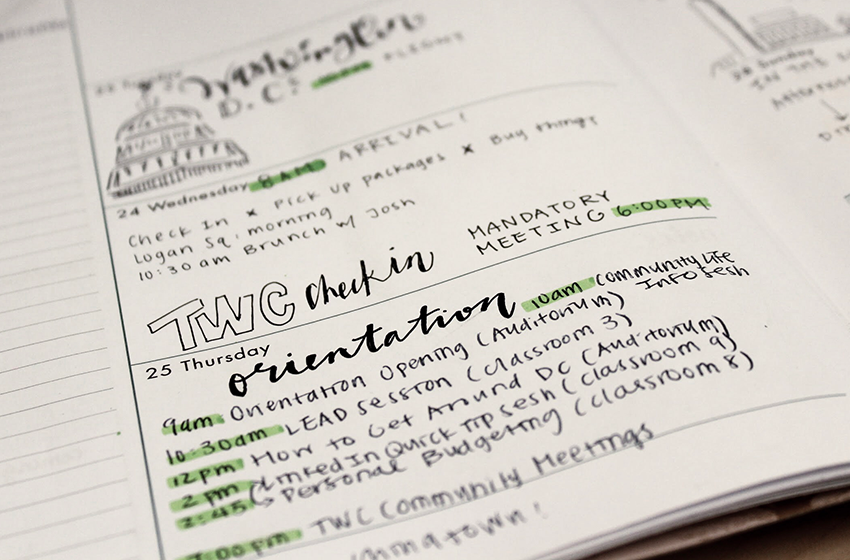 Washington
D.C.
FLIGHT
24 Wednesday 8AM ARRIVAL!
Check In x Pick up packages x Buy things
Logan Sq. morning
10:30am Brunch w/ Josh
MANDATORY
MEETING 6:00PM
TWC check in
25 Thursday
orientation 10am Community Life
Info Sesh
9am Orientation Opening (Auditorium)
10:30am LEAD Session (Classroom 3)
12pm How to Get Around DC (Auditorium)
2pm LinkedIn Quick Tip Sesh (Classroom 9)
2:45 Personal Budgeting (Classroom 8)
7:00pm TWC Community Meetings
28 Sunday
IN THE